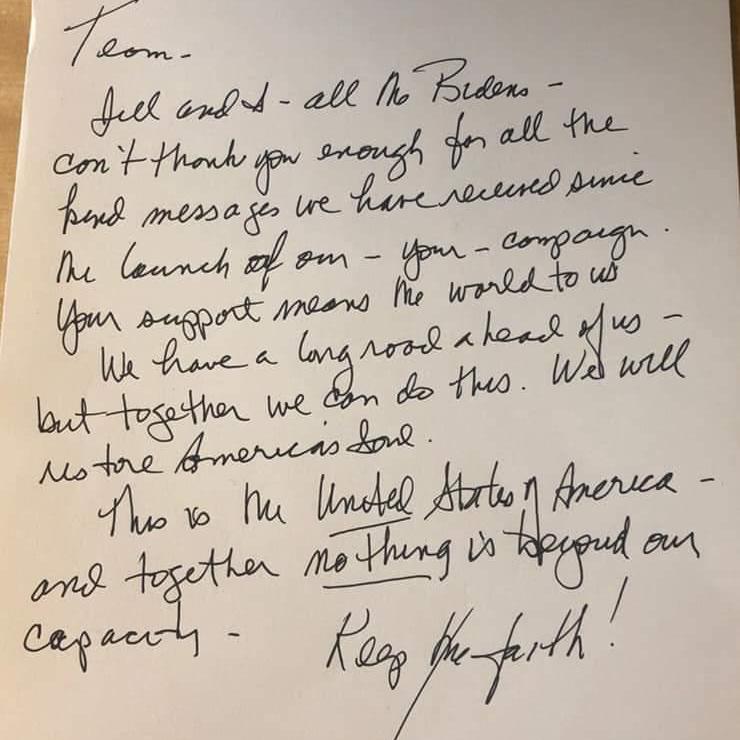 Team-
Jill and I - all the Bidens -
can't thank you enough for all the
kind messages we have received since
the launch of our - your - campaign.
Your support means the world to us
We have a long road ahead of us -
but together we can do this. We will
restore America's Soul.
This is the United States of America -
and together nothing is beyond our
capacity -
Keep the faith!